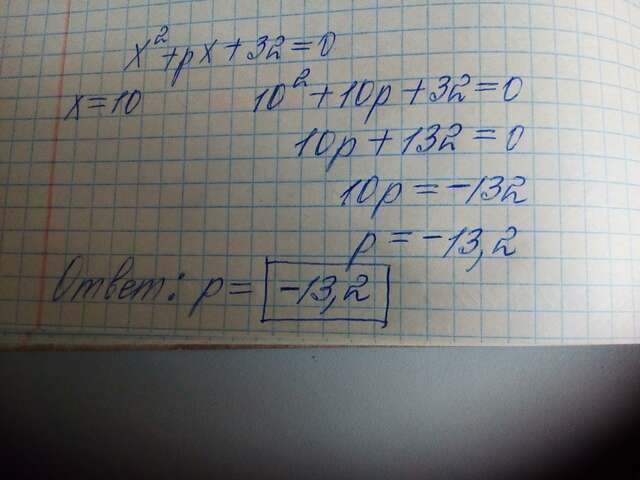 x²+px+32=0
x=10 10²+10p+32=0
10p+132=0
10p=-132
p=-13,2
Ответ: p= -13,2